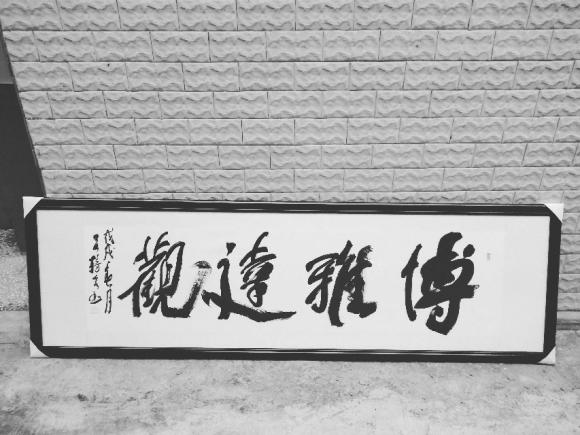 博雅達觀
戊戌春月